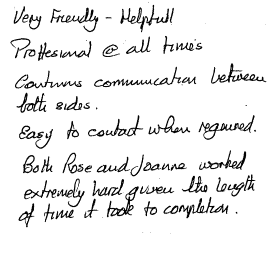 Very Friendly - Helpfull
Proffesional @ all times
Continuus communication between
both sides.
Easy to contact when required.
Both Rose and Joanne worked
extremely hard given the length
of time it took to completion.